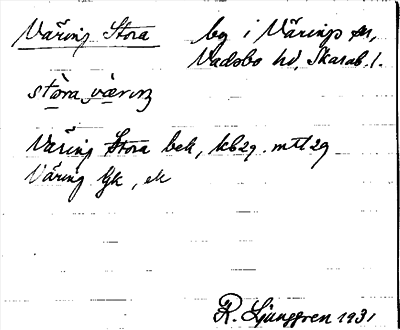 Väring Stora by i Värings sn,
Vadsbo hd, Skarab. l.
stòra væ̀rıŋ
Väring Stora bek, kb 29. mtl 29
Väring Gk, ek
R. Ljunggren 1931